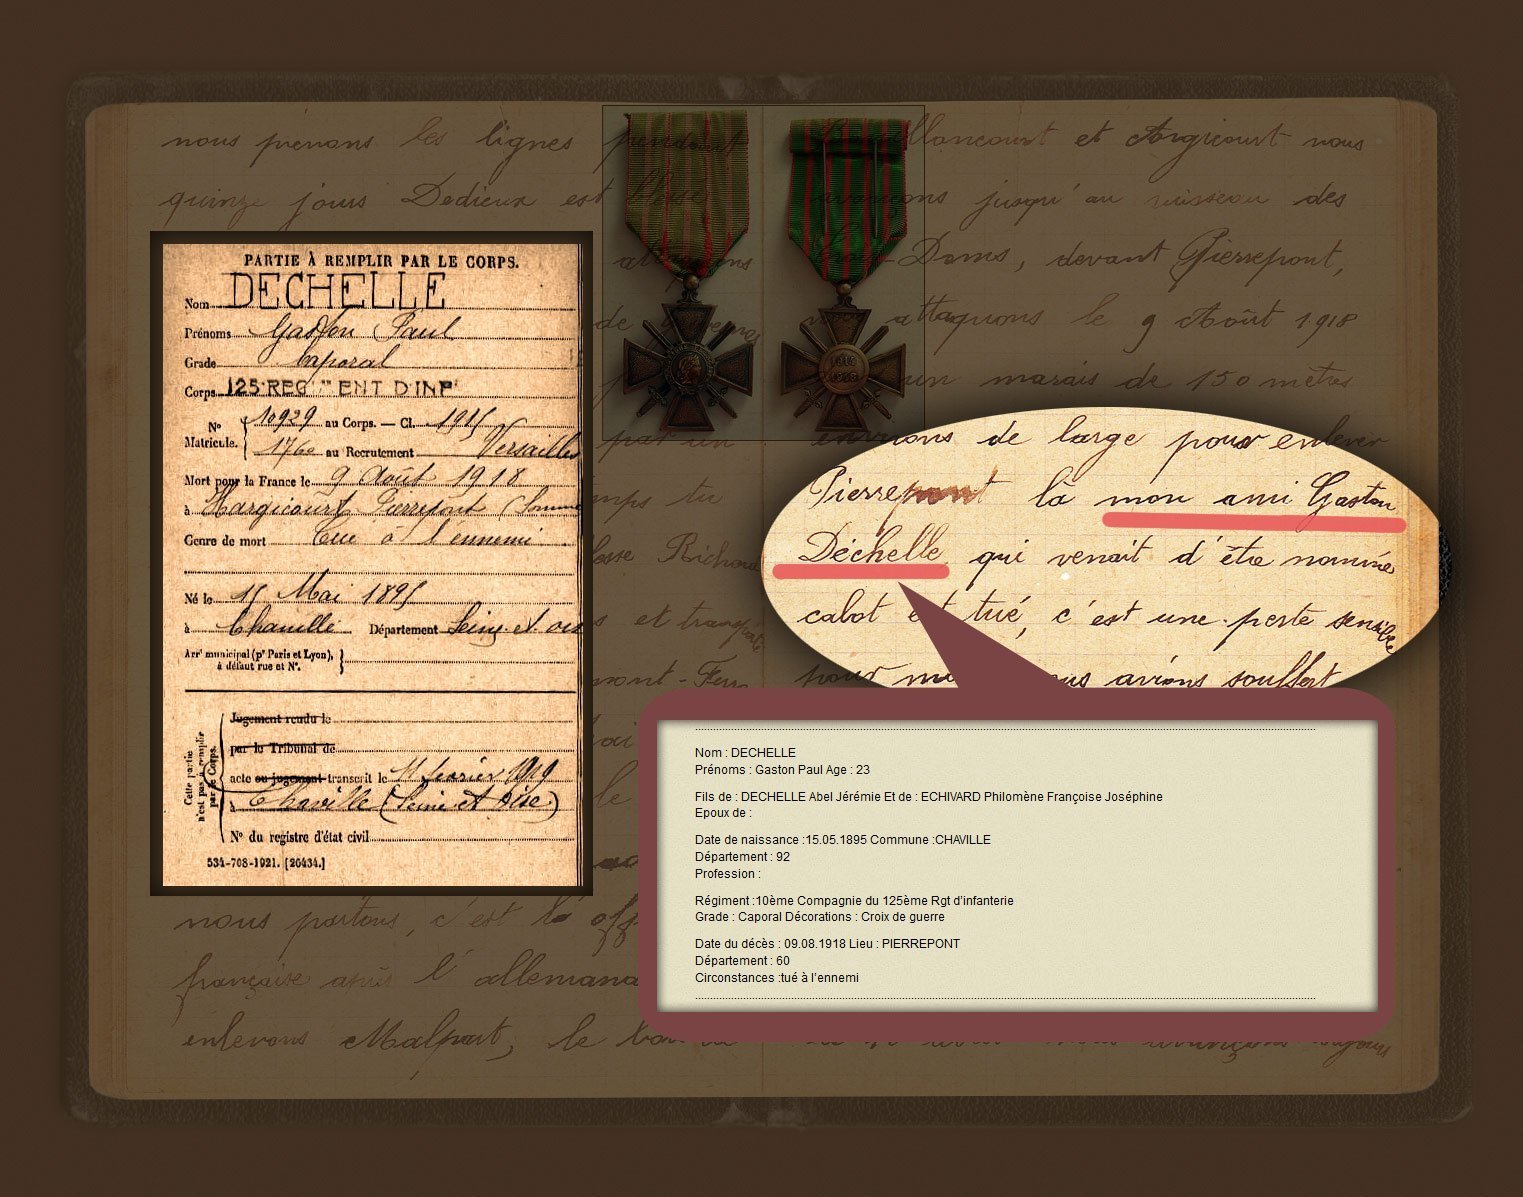 nous prenons les lignes pendant
quinze jours Dedieux est blessé
PARTIE À REMPLIR PAR LE CORPS.
Nom DECHELLE
Prénoms Gaston Paul
Grade Caporal
Corps 125 REGᵗ ENT D'INFⁱᵉ
Nº Matricule. 10929 au Corps. — Cl. 1915
1760 au Recrutement Versailles
Mort pour la France le 9 Août 1918
à Hargicourt Pierrepont (Somme
Genre de mort Tué à l'ennemi
Né le 15 Mai 1895
à Chaville Département Seine et Oise
Arrᵗ municipal (pʳ Paris et Lyon),
à défaut rue et Nº.
Cette partie n'est pas à remplir par le Corps.
Jugement rendu le
par le Tribunal de
acte ou jugement transcrit le 11 février 1919
à Chaville (Seine et Oise)
Nº du registre d'état civil
534-708-1921. [26434.]
nous partons, c'est là
française après l'allemand
enlevons Malpart, le
et Hargicourt nous
avançons jusqu'au ruisseau des
Doms, devant Pierrepont,
nous attaquons le 9 Août 1918
un marais de 150 mètres
environs de large pour enlever
Pierrepont là mon ami Gaston
Déchelle qui venait d'être nommé
cabot est tué, c'est une perte sensible
pour moi nous avions souffert
Nom : DECHELLE
Prénoms : Gaston Paul Age : 23
Fils de : DECHELLE Abel Jérémie Et de : ECHIVARD Philomène Françoise Joséphine
Epoux de :
Date de naissance :15.05.1895 Commune :CHAVILLE
Département : 92
Profession :
Régiment :10ème Compagnie du 125ème Rgt d'infanterie
Grade : Caporal Décorations : Croix de guerre
Date du décès : 09.08.1918 Lieu : PIERREPONT
Département : 60
Circonstances :tué à l'ennemi